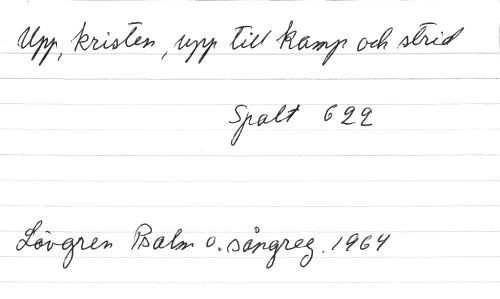 Upp, kristen, upp till kamp och strid
Spalt 622
Lövgren Psalm o. sångreg. 1964